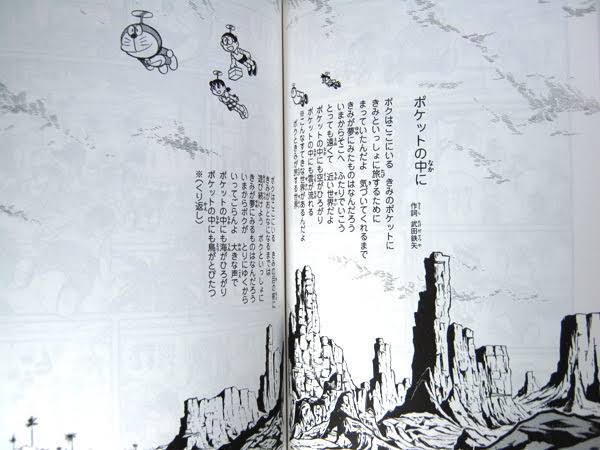 ポケットの中に
作詞 武田鉄矢
ボクはここにいる きみのポケットに
きみといっしょに旅するために
まっていたんだよ 気づいてくれるまで
きみが夢にみたものはなんだろう
いまからそこへ ふたりでいこう
とっても遠くて 近い世界だよ
ポケットの中にも空がひろがり
ポケットの中にも雲が流れる
※こんなすてきな世界があるんだよ
ボクときみが旅する世界
ボクはここにいる きみの目の前に
きみがおとなになるまでは
遊び続けよう ボクといっしょに
きみが夢にみるものはなんだろう
いまからボクが とりにゆくから
いってごらんよ 大きな声で
ポケットの中にも海がひろがり
ポケットの中にも鳥がとびたつ
※(くり返し)